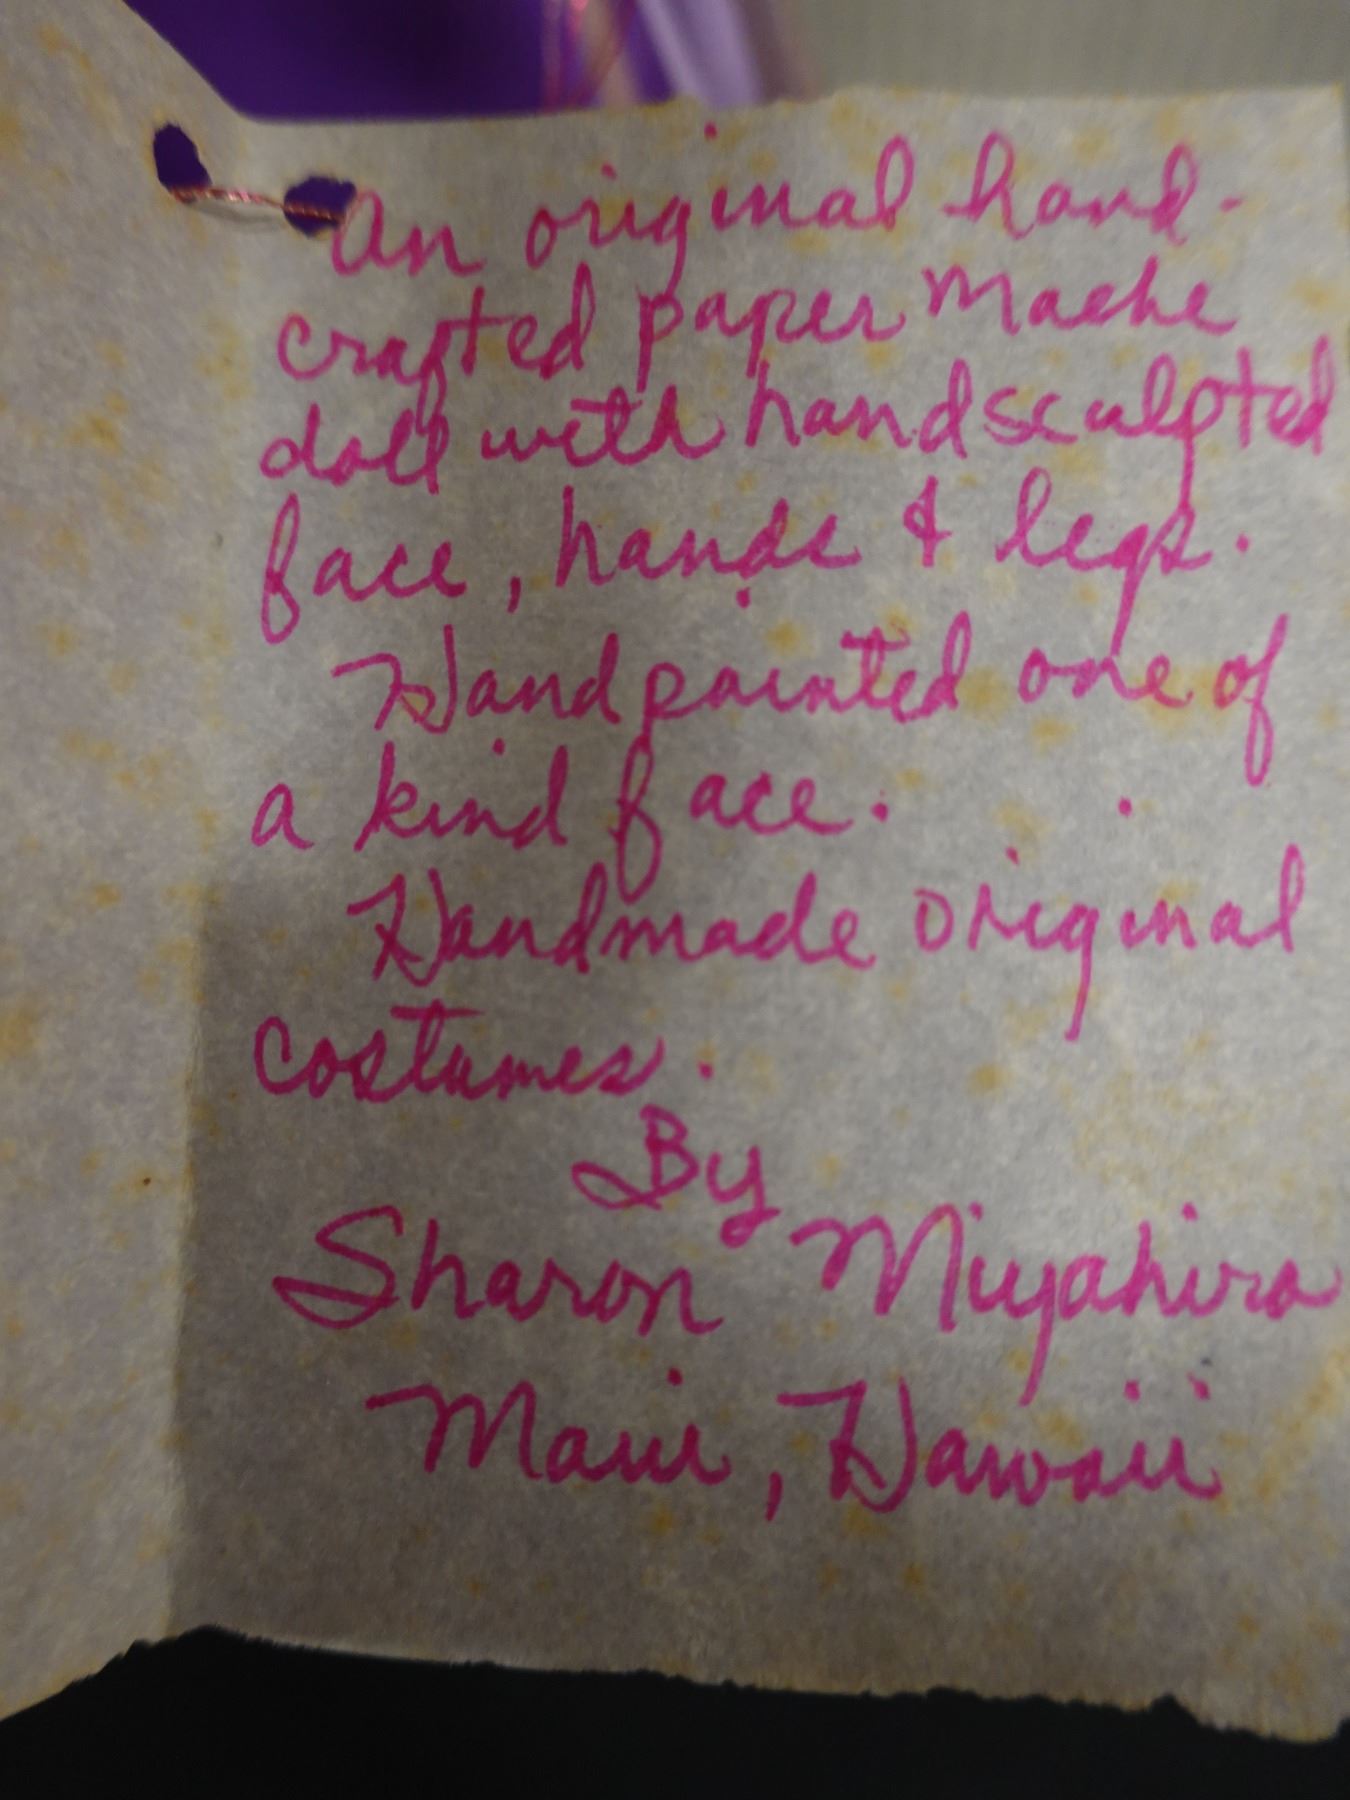 An original hand-
crafted paper mache
doll with handsculpted
face, hands & legs.
Handpainted one of
a kind face.
Handmade original
costumes.
By
Sharon Miyahira
Maui, Hawaii